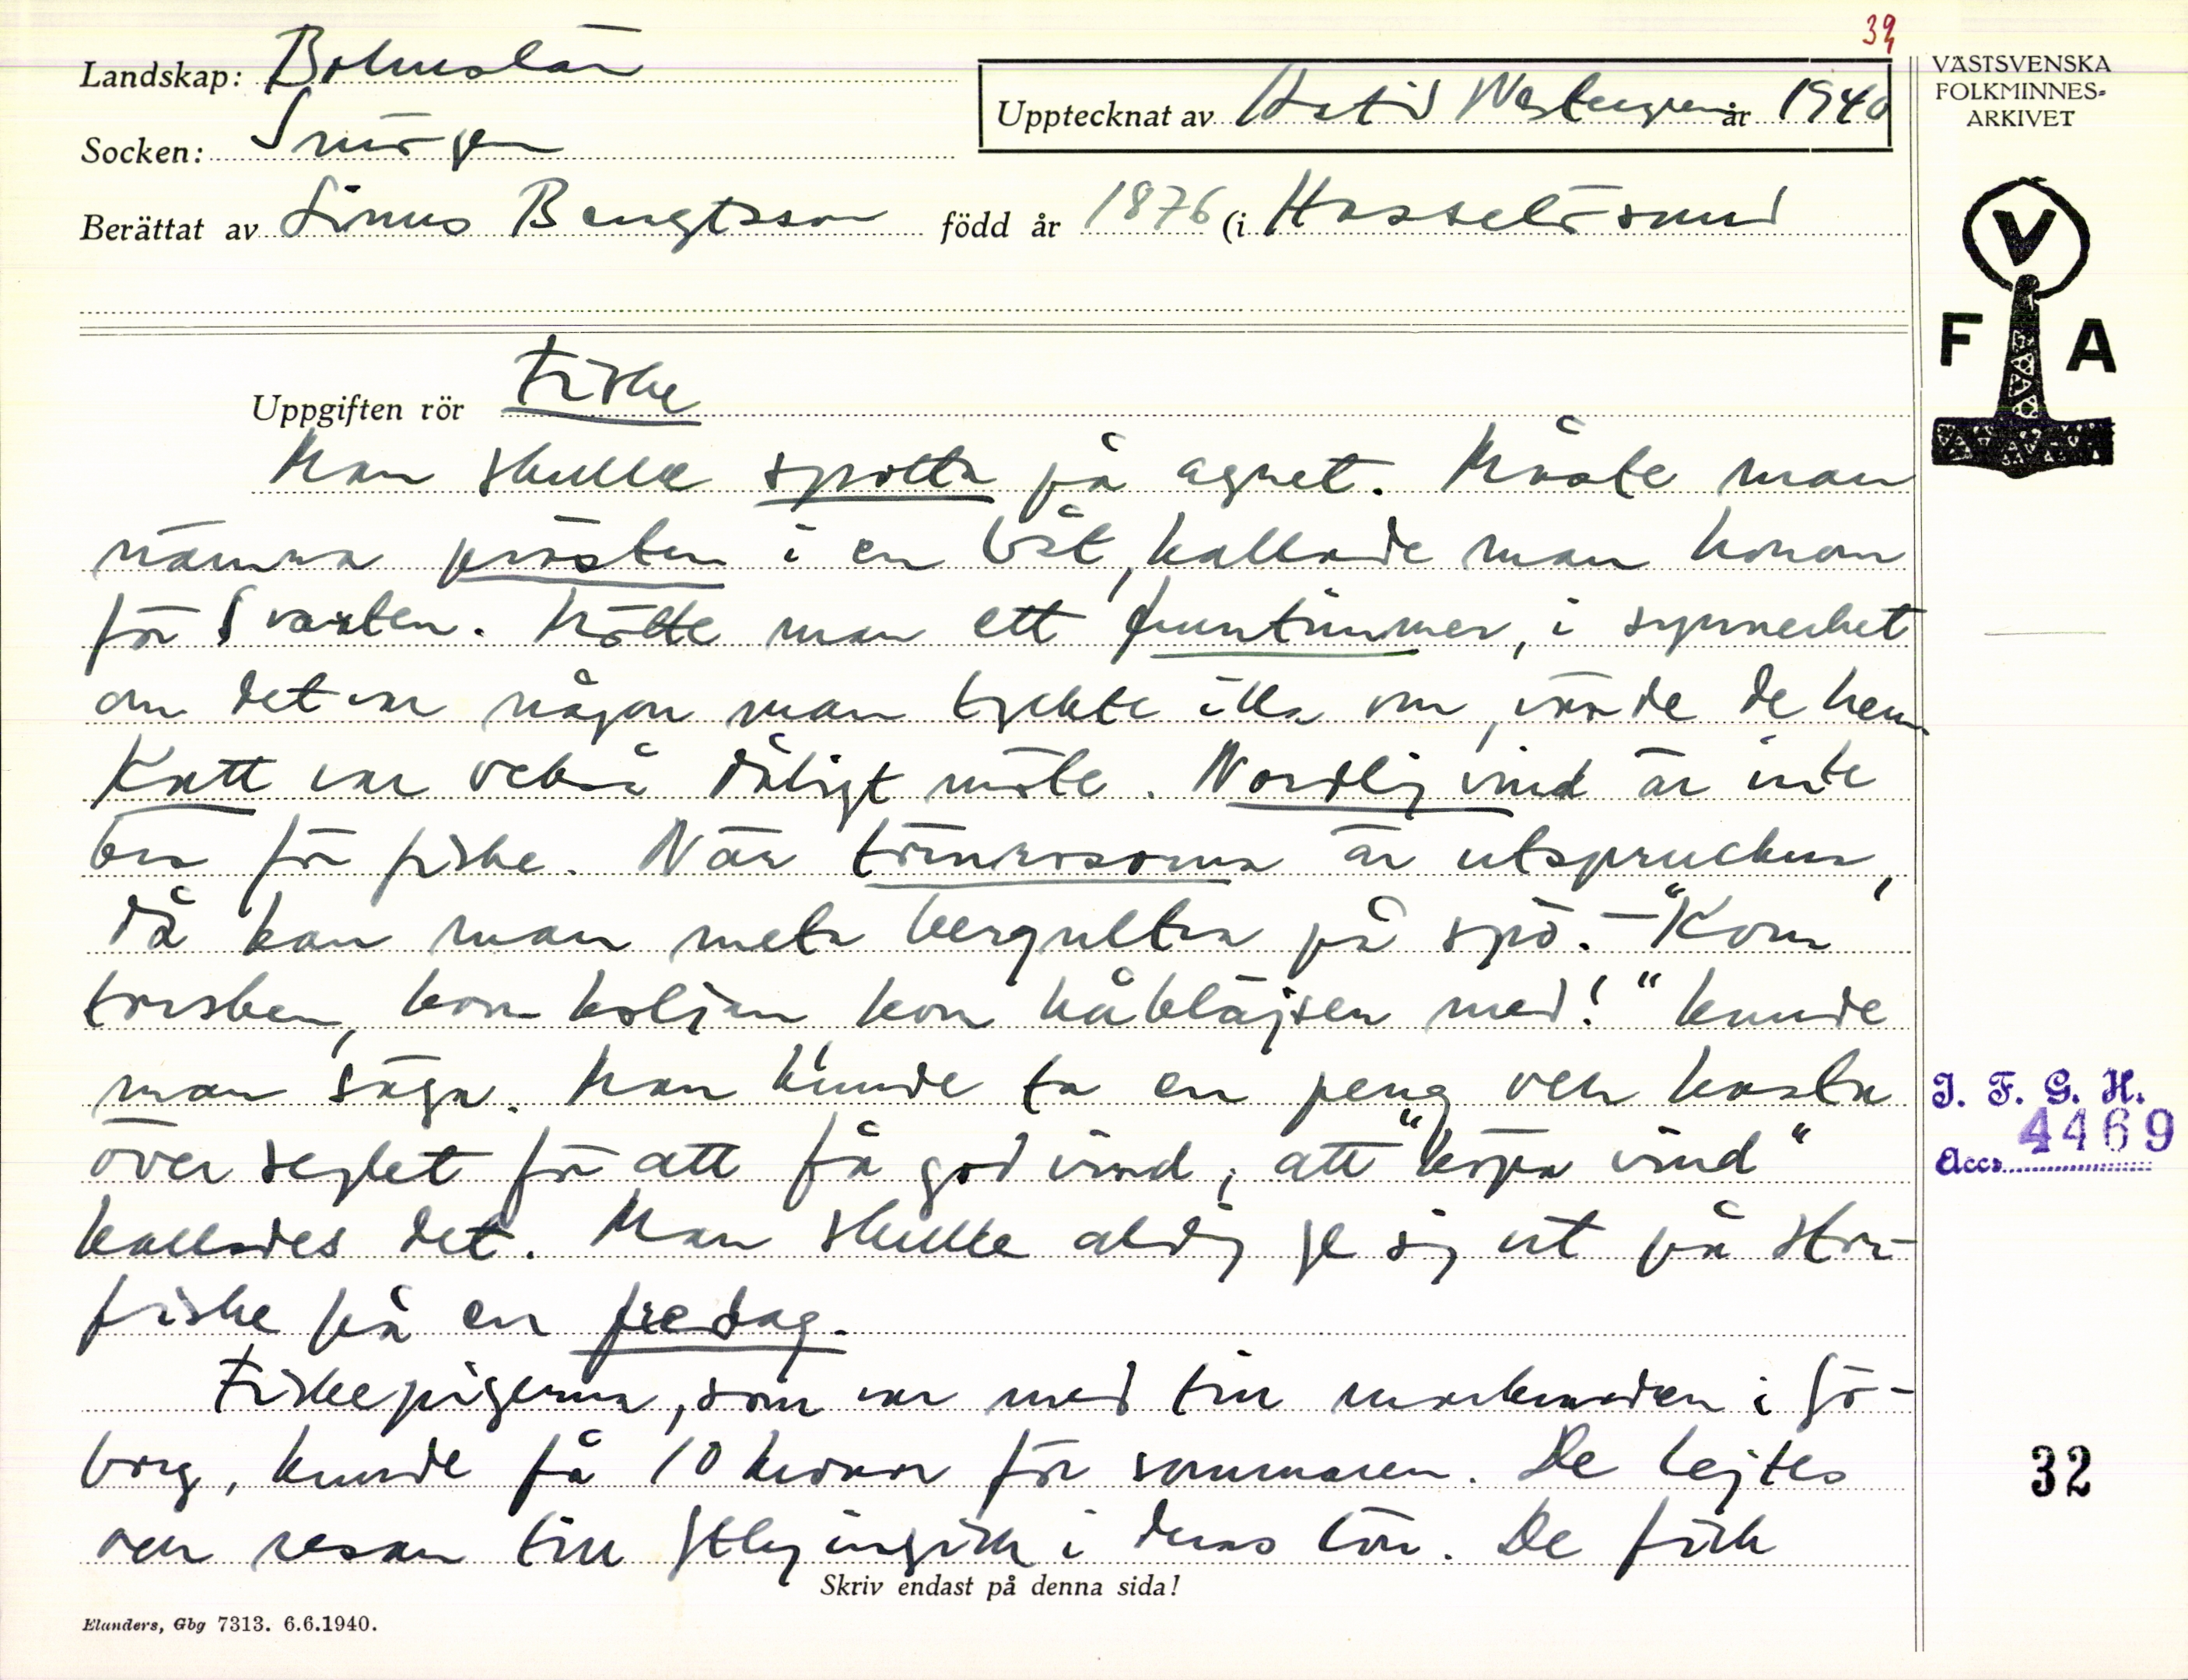 39
Landskap: Bohuslän
Socken: Smögen
Upptecknat av Hatid Westergren år 1940
Berättat av Linus Bengtsson född år 1876 (i Hasselösund
VÄSTSVENSKA
FOLKMINNES-
ARKIVET
V
F A
Uppgiften rör Fiske
Man skulle spotta på agnet. Måste man
nämna prästen i en båt, kallade man honom
för Svarten. Mötte man ett fruntimmer, i synnerhet
om det var någon man tyckte illa om, vände de hem
Katt var också dåligt möte. Nordlig vind är inte
bra för fiske. När törnrosorna är utspruckna,
då kan man meta bergultra på spö. – "Kom
torsken, kom koljan kom håbläjsen med!" kunde
man säga. Man kunde ta en peng och kasta
över seglet för att få god vind, att "köpa vind"
kallades det. Man skulle aldrig ge sig ut på stor-
fiske på en fredag.
Fiskepigerna, som var med till marknaden i Gö-
borg, kunde få 10 kronor för sommaren. De lejtes
och resan till Gtbg ingick i deras lön. De fick
Skriv endast på denna sida!
I. F. G. H.
Accs 4469
32
Elanders, Gbg 7313. 6.6.1940.